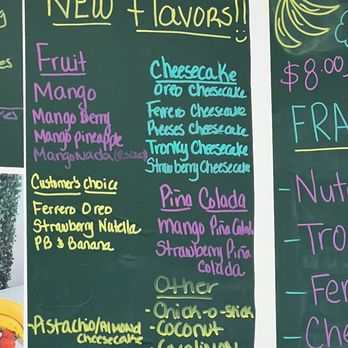 NEW Flavors!!
Fruit
Mango
Mango Berry
Mango pineapple
MangoNada
Customer's choice
Ferrero Oreo
Strawberry Nutella
PB & Banana
-Pistachio/Almond
cheesecake
Cheesecake
Oreo Cheesecake
Ferrero Cheesecake
Reeses Cheesecake
Tronky Cheesecake
Strawberry Cheesecake
Piña Colada
mango Piña Colada
Strawberry Piña
colada
Other
-Chick-o-stick
-Coconut
$8.00
FRA
-Nut
-Tro
-Fer
-Che